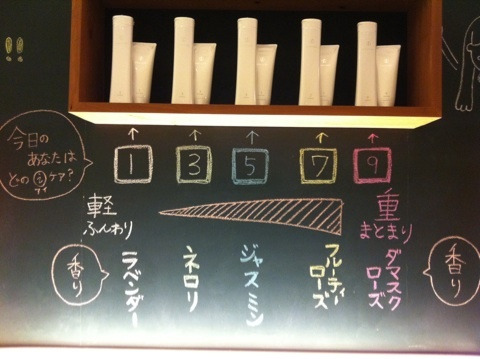 !!
今日の
あなたは
どの㋛ケア?
アイ
1
3
5
7
9
軽
ふんわり
重
まとまり
香り
ラベンダー
ネロリ
ジャスミン
フルーティー
ローズ
ダマスク
ローズ
香り